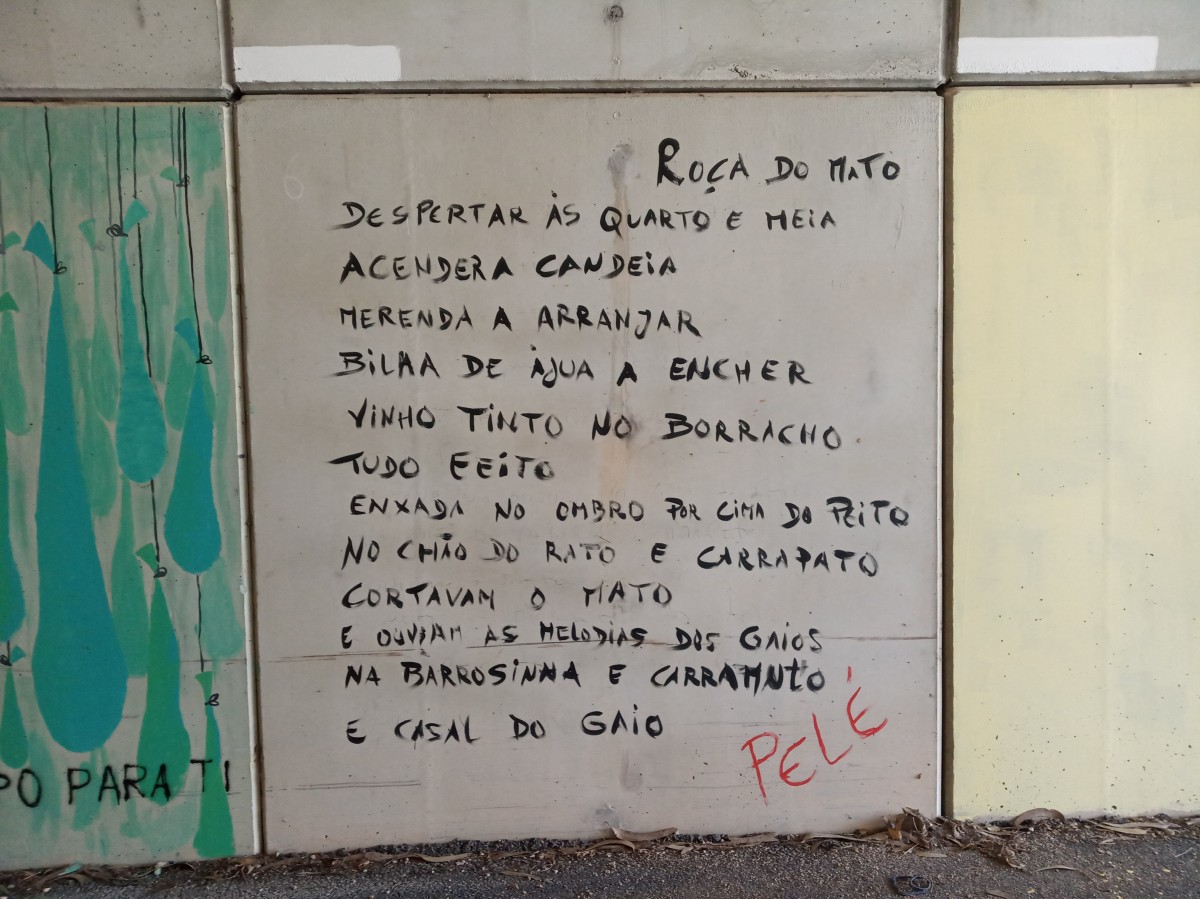 ROÇA DO MATO
DESPERTAR ÀS QUARTO E MEIA
ACENDERA CANDEIA
MERENDA A ARRANJAR
BILHA DE ÁGUA A ENCHER
VINHO TINTO NO BORRACHO
TUDO FEITO
ENXADA NO OMBRO POR CIMA DO PEITO
NO CHÃO DO RATO E CARRAPATO
CORTAVAM O MATO
E OUVIAM AS MELODIAS DOS GAIOS
NA BARROSINHA E
E CASAL DO GAIO
PELÉ
PO PARA TI